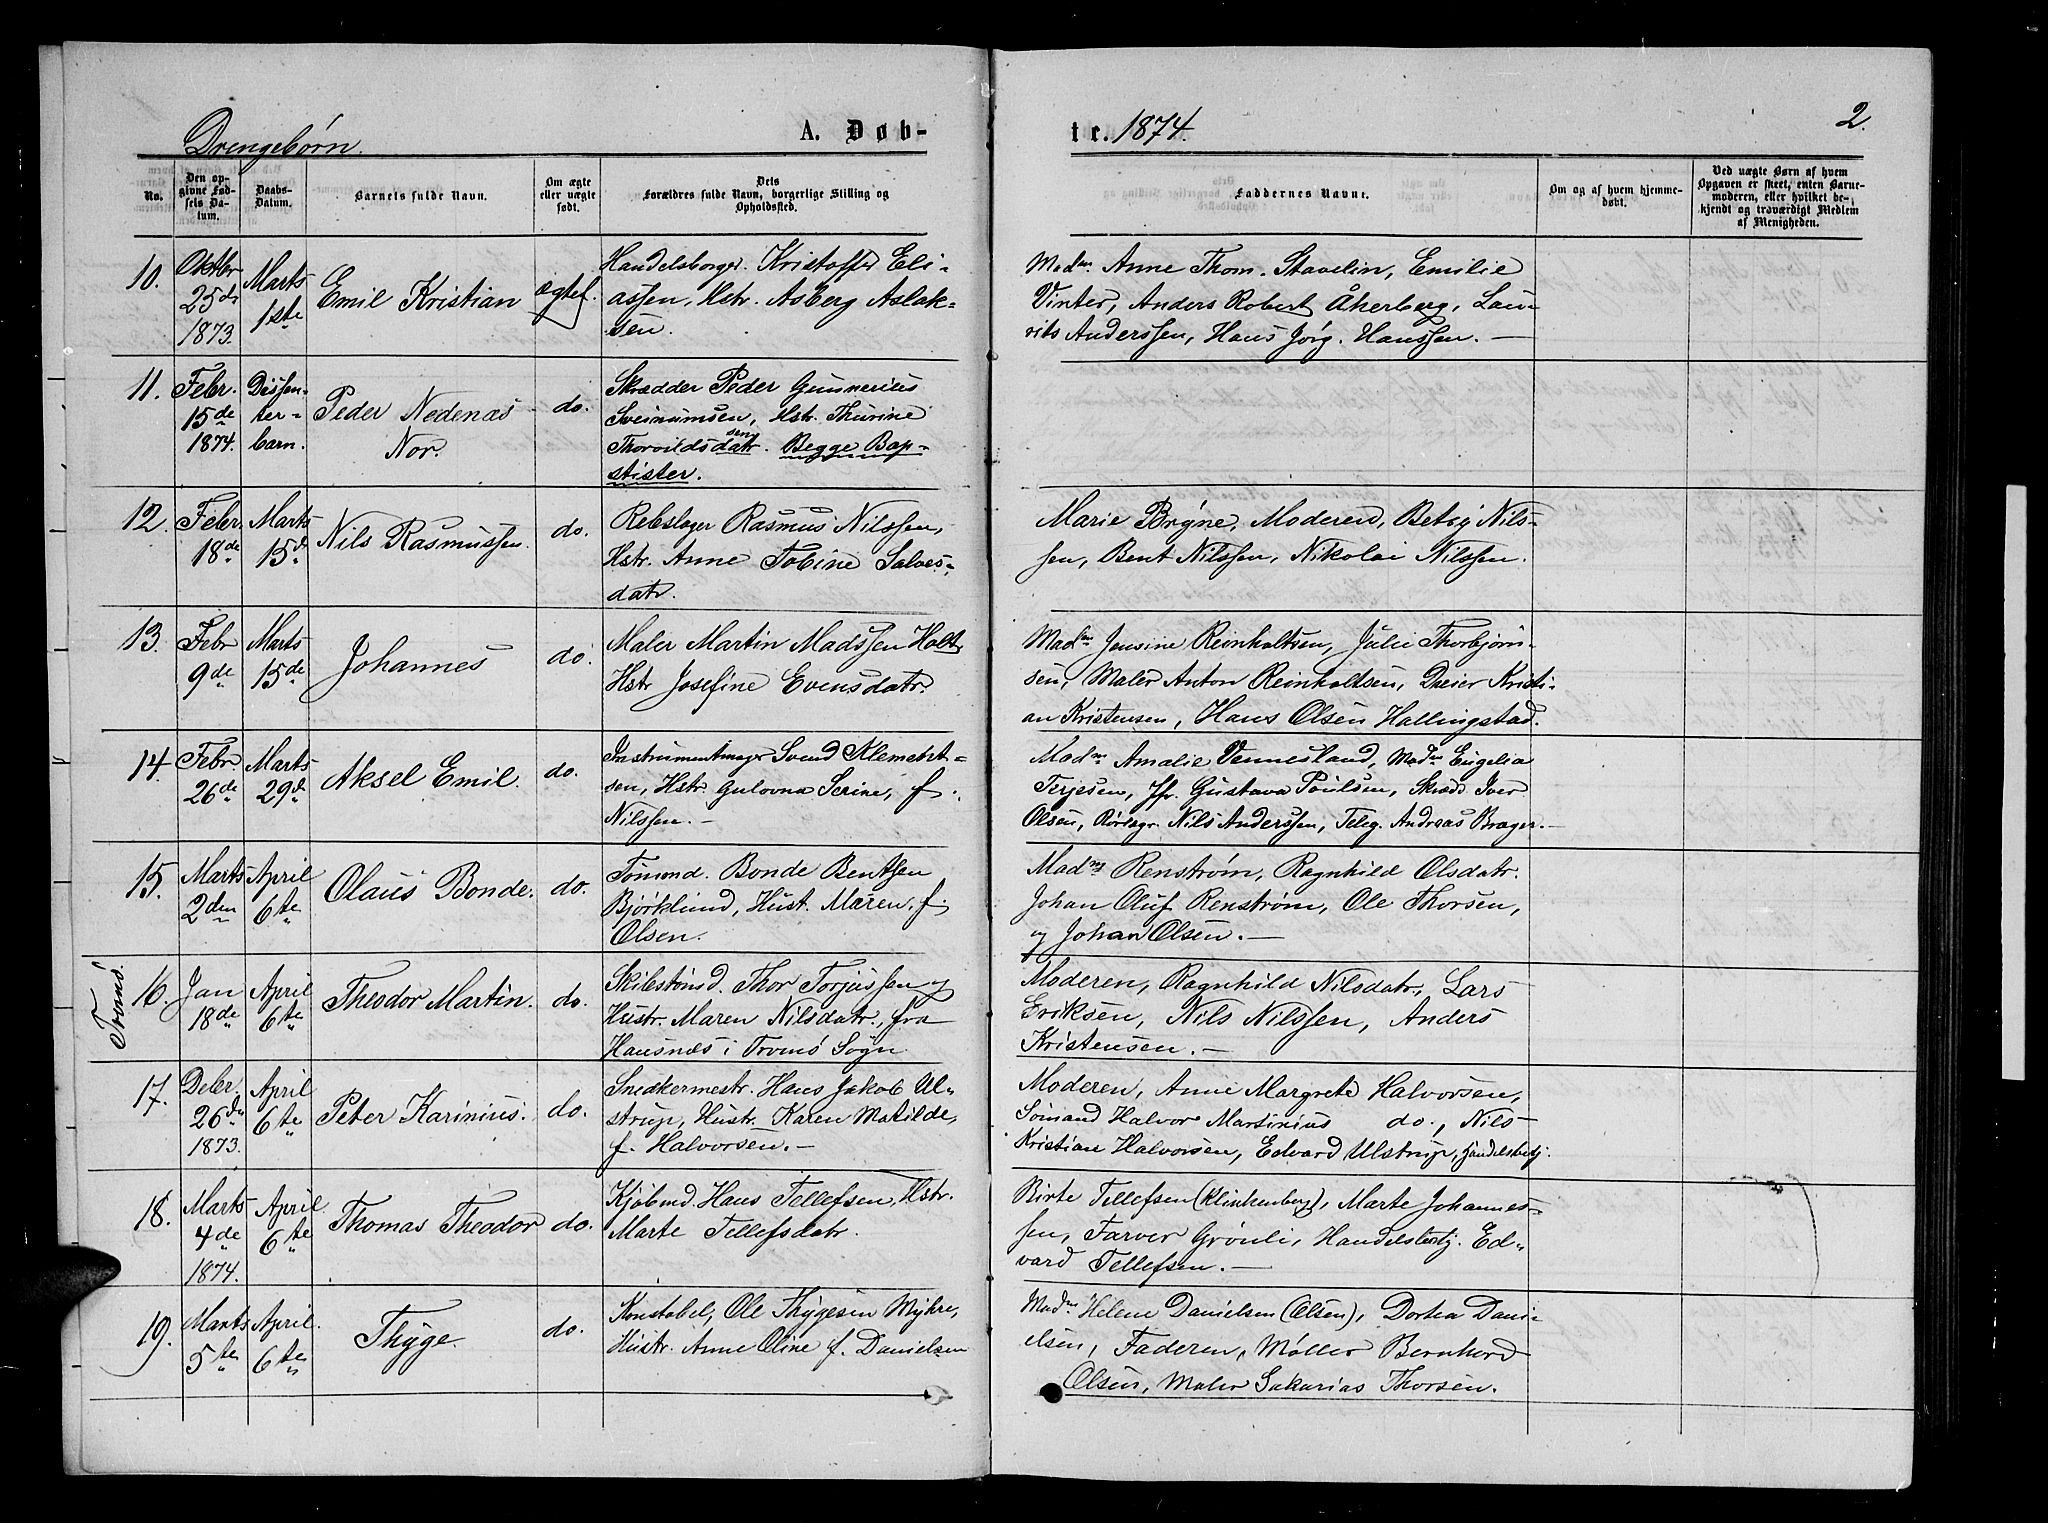 Drengebørn. A. Døb-
No.
Den op-
givne Fød-
sels Da-
tum.
Daabs-
Datum.
Barnets fulde Navn.
Om ægte
eller uægte
født.
Dets
Forældres fulde Navn, borgerlige Stilling og
Opholdssted.
10. Oktbr 25de 1873. Marts 1ste Emil Kristian ægtef.
Handelsborger. Kristoffer Eli-
assen, Hstr. Asberg Aslak-
sen.
11. Febr. 15de 1874. Dissen-
ter-
barn. Peder Nedenæs
Nor. do.
Skrædder Peder Gunnerius
Sveinumsen, Hstr. Thurine
Thorvildsdatr. Begge Bap-
tister.
12. Febr. 18de Marts 15de Nils Rasmussen. do.
Rebslager Rasmus Nilssen,
Hstr. Anne Tobine Salves-
datr.
13. Febr 9de Marts 15de Johannes do.
Maler Martin Madssen Holt,
Hstr Josefine Evensdatr.
14. Febr. 26de Marts 29de Aksel Emil. do.
Instrumentmager Svend Klemet-
sen, Hstr. Gulovna Serine, f.
Nilssen.-
15. Marts 2den April 6te Olaus Bonde. do.
Sømand. Bonde Bentsen
Bjørklund, Hust. Maren, f.
Olsen.
Tromö.
16. Jan 18de April 6te Theodor Martin. do.
Skibstømd. Thor Torjussen og
Hustr. Maren Nilsdatr., fra
Hausnæs i Tromö Sogn.
17. Debr. 26de 1873. April 6te Peter Karinius. do.
Snedkermestr. Hans Jakob Ul-
strup, Hustr. Karen Matilde,
f. Halvorsen.-
18. Marts 4de 1874. April 6te Thomas Theodor do.
Kjøbmd. Hans Tellefsen, Hstr.
Marte Tellefsdatr.
19. Marts 5te April. 6te Thyge. do.
Konstabel, Ole Thygesen Myhre,
Hustr. Anne Oline f. Danielsen
te. 1874. 2.
Faddernes Navne.
Om og af hvem hjemme-
døbt.
Ved uægte Børn af hvem
Opgaven er skeet, enten Barne-
moderen, eller hvilket be-
kjendt og troværdigt Medlem
af Menigheden.
Madm. Anne Thom. Stavelin, Emilie
Vinter, Anders Robert Åkerberg, Lau-
rits Anderssen, Hans Jörg. Hanssen.-
Marie Brÿne, Moderen, Betsy Nils-
sen, Bent Nilssen, Nikolai Nilssen.
Madm Jensine Reinholtsen, Julie Thorbjörn-
sen, Maler Anton Reinholtsen, Dreier Kristi-
an Kristensen, Hans Olsen Hallingstad.
Madm Amalie Vennesland, Madm Eugelia
Terjesen, Jfr. Gustava Poulsen, Skræd. Iver
Olsen, Nils Anderssen, Teleg. Andreas Brager.-
Madm Renström, Ragnhild Olsdatr.
Johan Oluf Renström, Ole Thorsen,
og Johan Olsen.-
Moderen, Ragnhild Nilsdatr, Lars
Eriksen, Nils Nilssen, Anders
Kristensen.-
Moderen, Anne Margrete Halvorsen,
Sömand Halvor Martinius do., Nils
Kristian Halvorsen, Edvard Ulstrup, Handelsbetj.
Birte Tellefsen (Klinkenberg), Marte Johannes-
sen, Farver Grönli, Handelsbetj. Ed-
vard Tellefsen.-
Madm Helene Danielsen (Olsen), Dortea Dani-
elsen, Faderen, Møller Bernhard
Olsen, Maler Sakarias Thorsen.